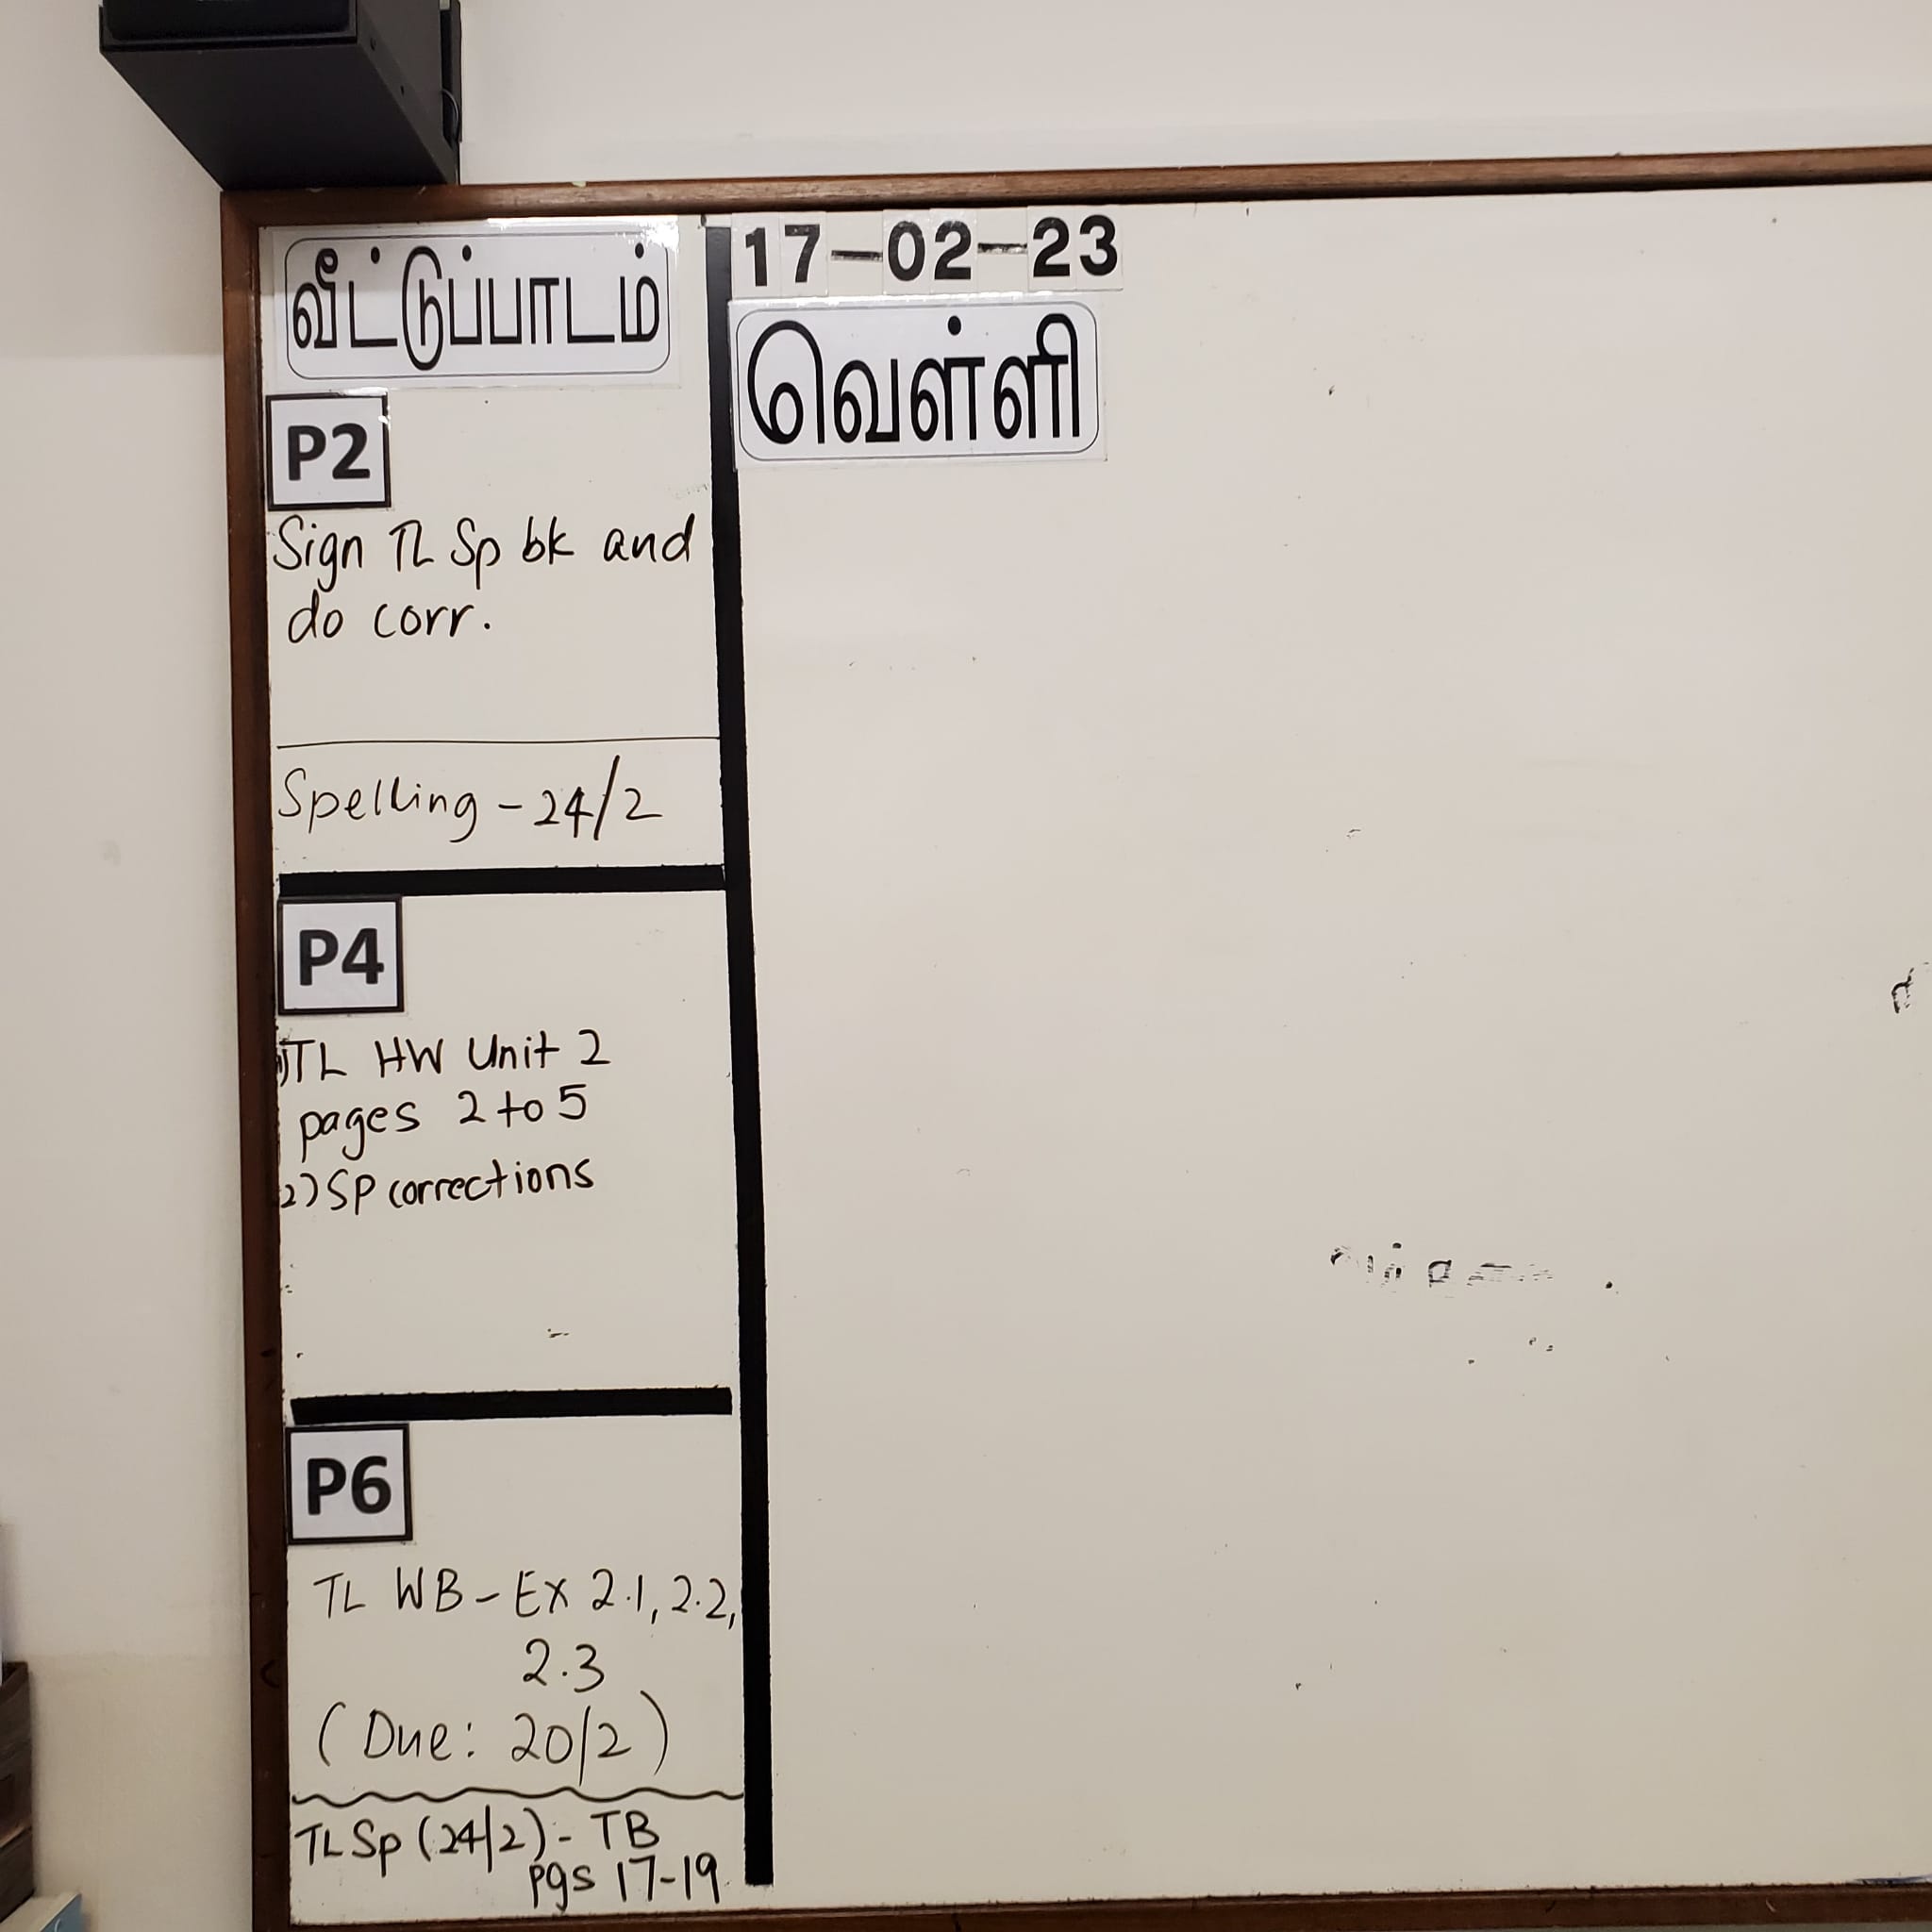 வீட்டுப்பாடம்
17-02-23
வெள்ளி
P2
Sign TL Sp bk and
do corr.
Spelling - 24/2
P4
1) TL HW Unit 2
pages 2 to 5
2) SP corrections
P6
TL WB - Ex 2.1, 2.2,
2.3
(Due: 20/2)
TL Sp (24/2) - TB
pgs 17-19